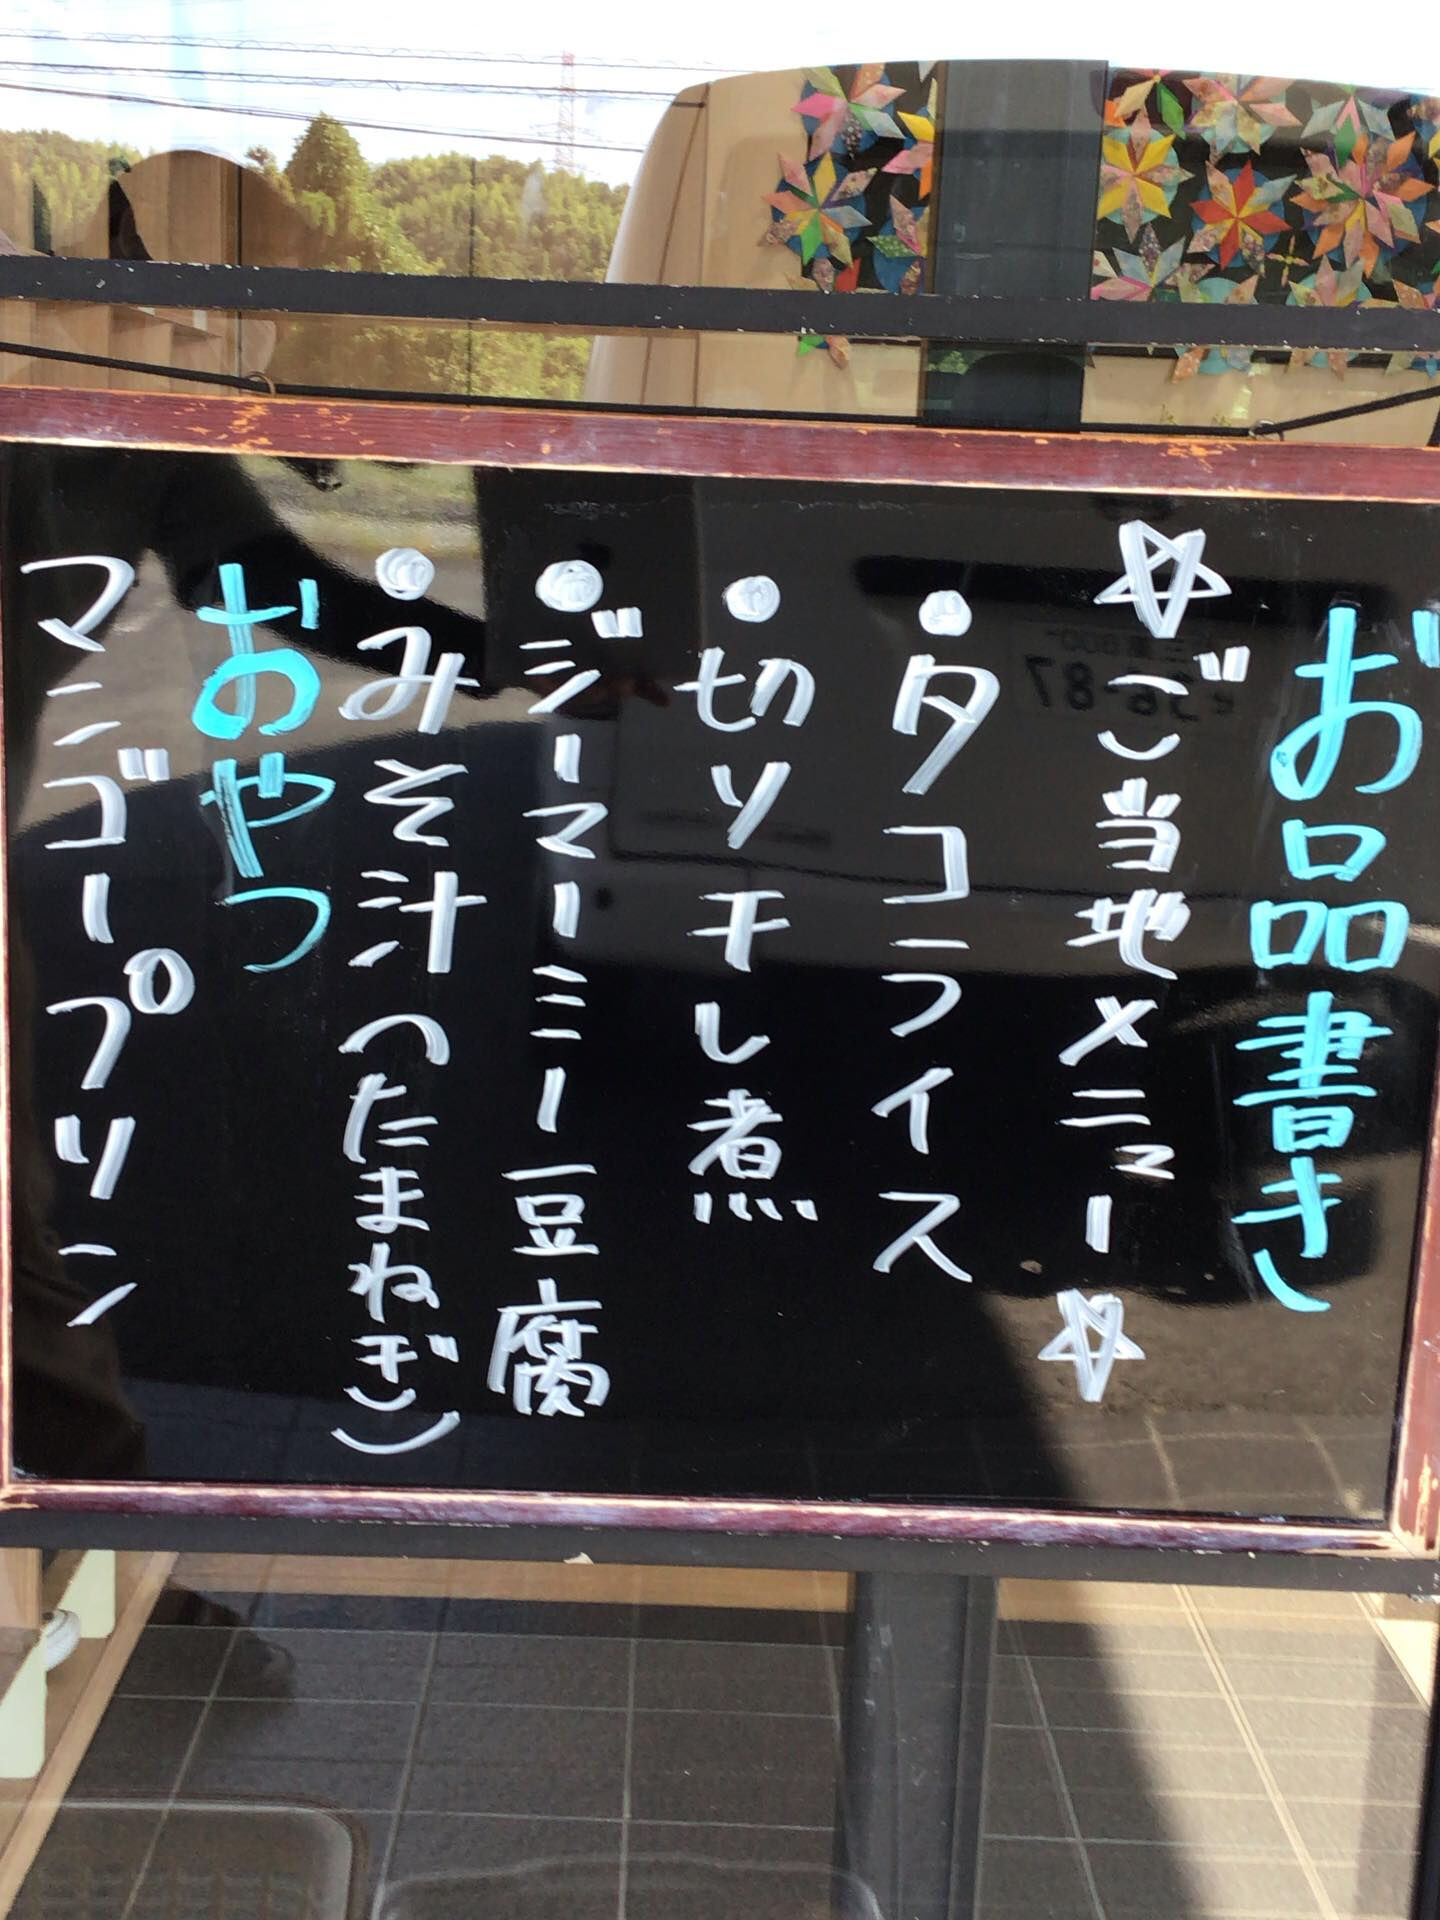 お品書き
☆ご当地メニュー☆
・タコライス
・切り干し煮
・ジーマーミー豆腐
・みそ汁(たまねぎ)
おやつ
マンゴープリン